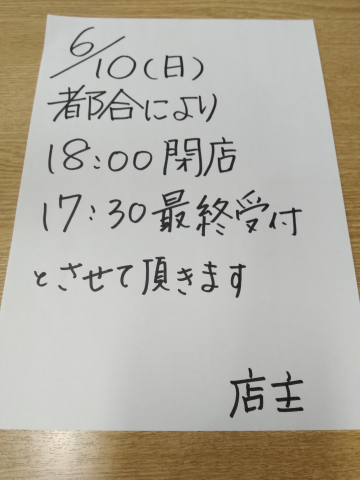 6/10(日)
都合により
18:00閉店
17:30最終受付
とさせて頂きます
店主